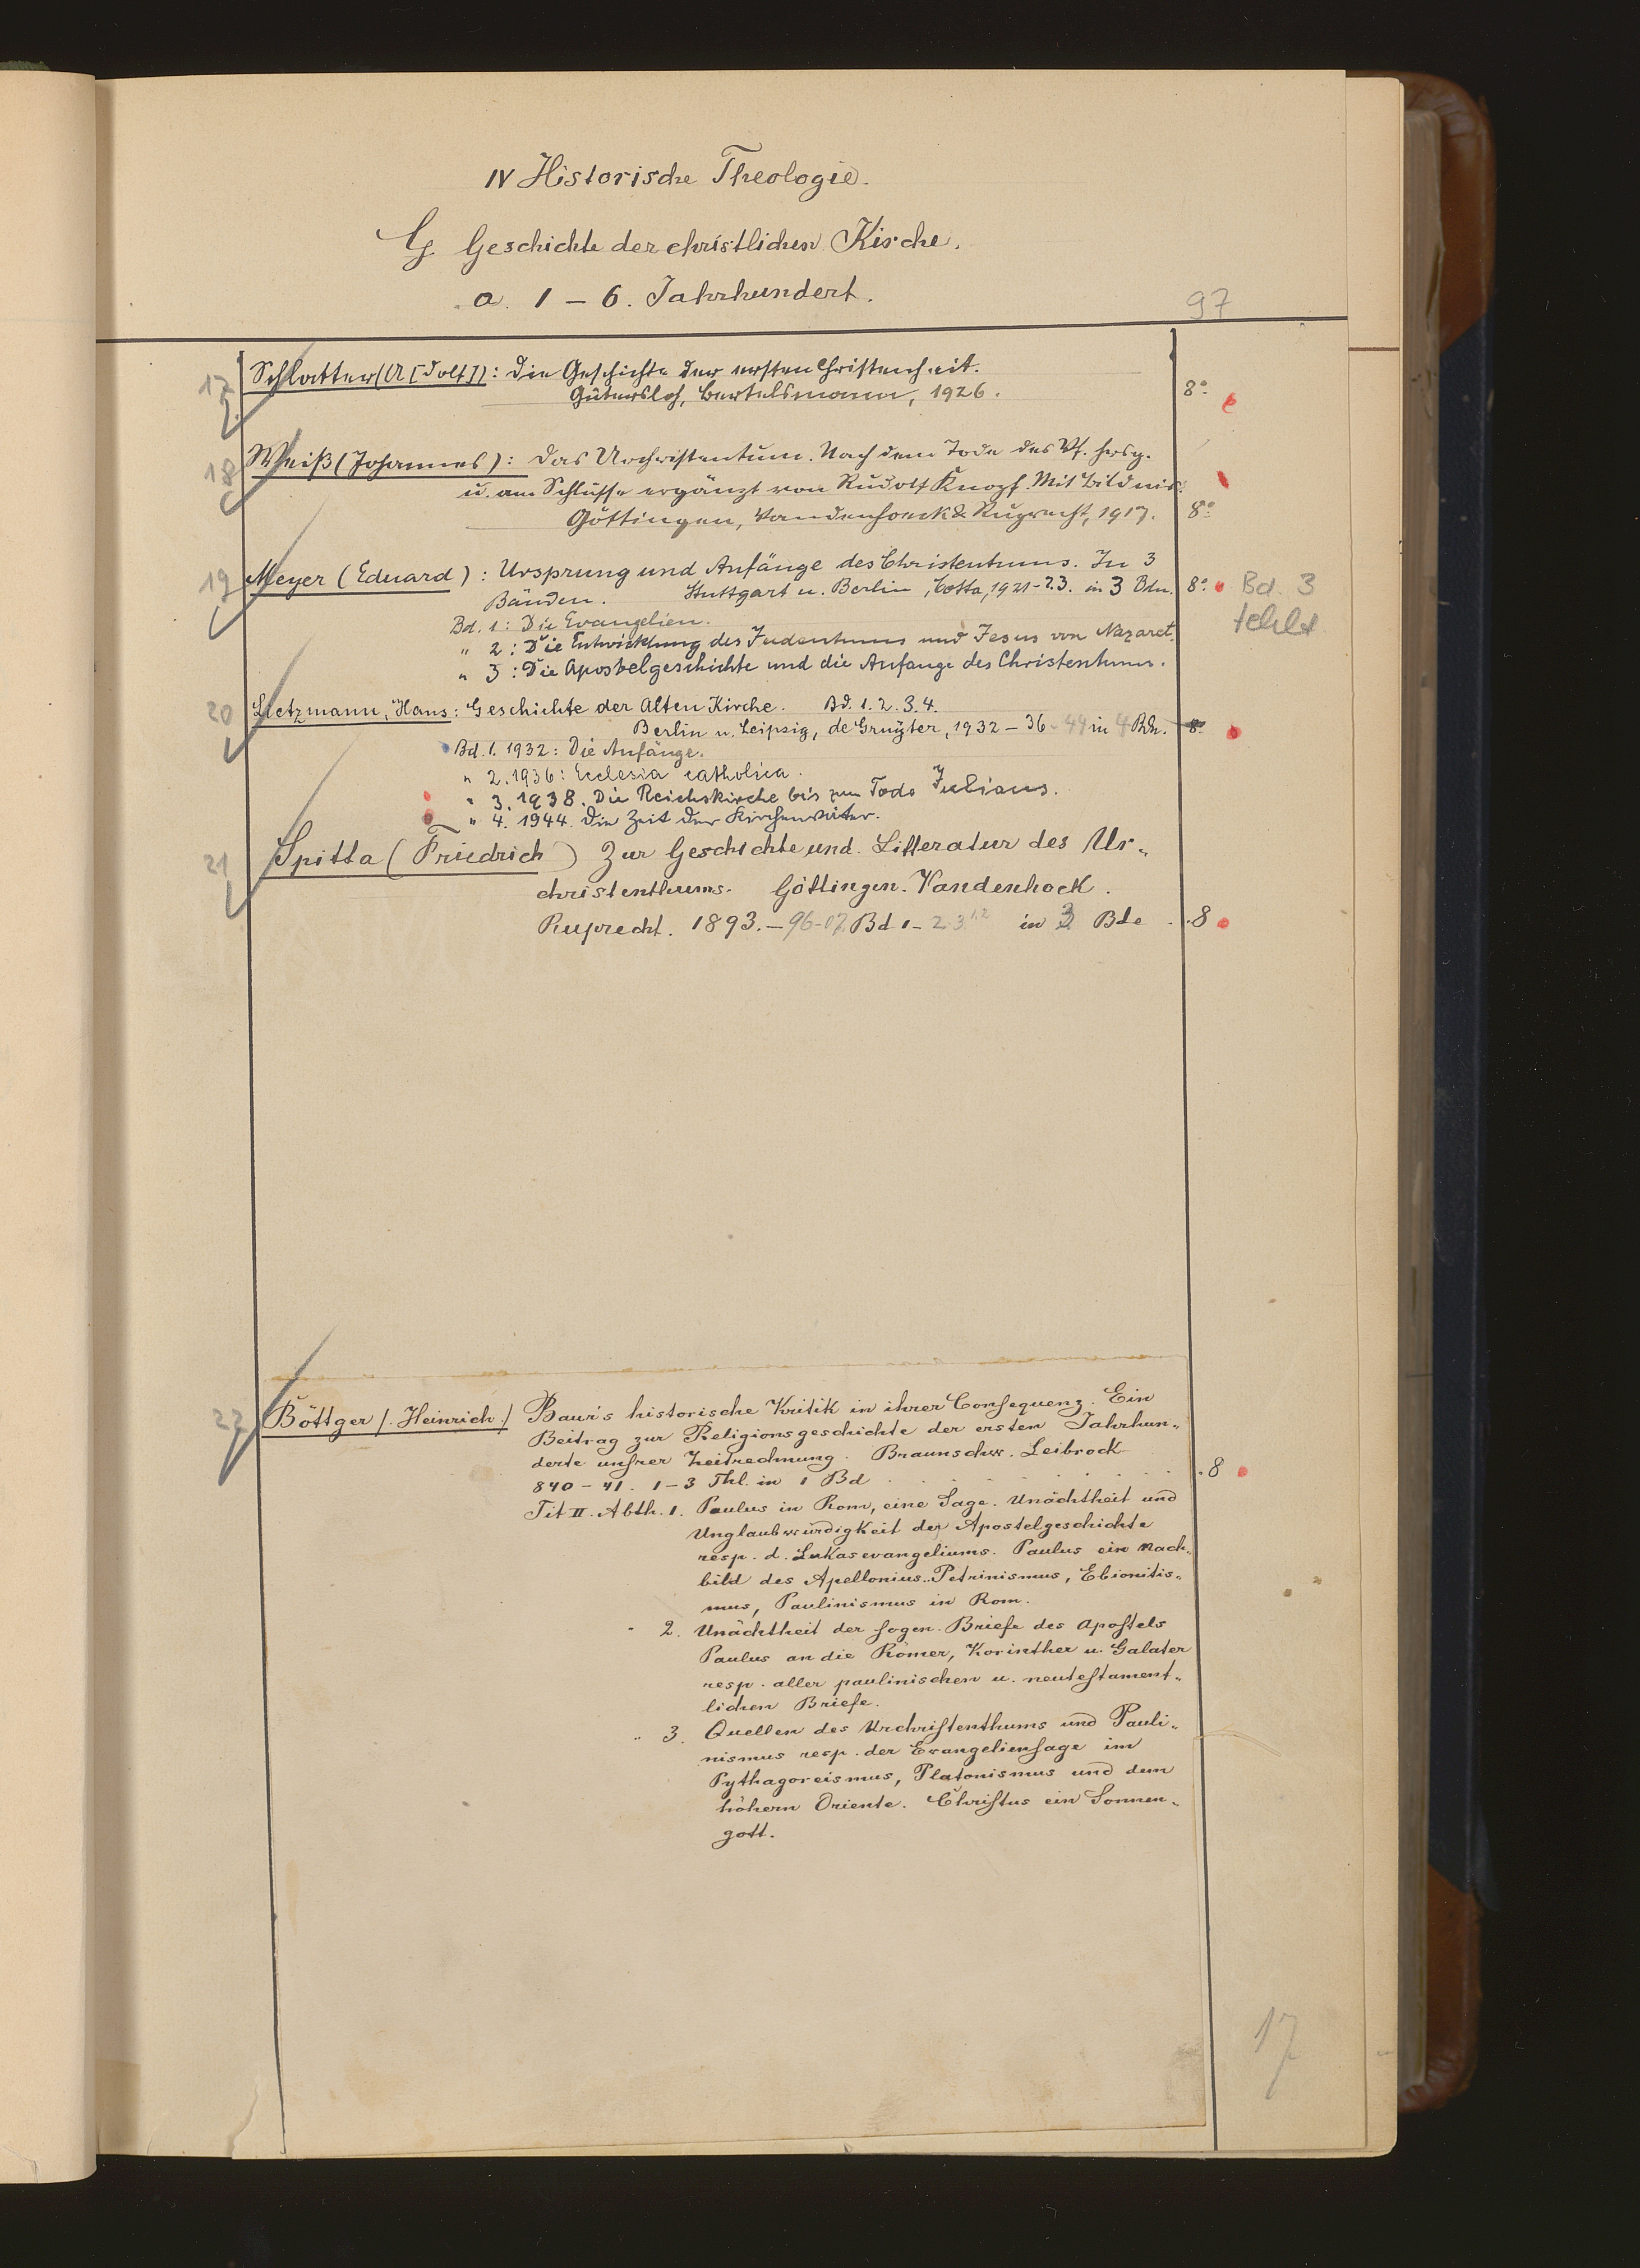 IV Historische Theologie.
G Geschichte der christlichen Kirche.
a. 1 – 6. Jahrhundert.
97
17 Schlatter (A[dolf]): Die Geschichte der ersten Christenheit.
Gütersloh, Bertelsmann, 1926. 8°
18 Weiß (Johannes): Das Urchristentum. Nach dem Tode des Vf. hrsg.
u. am Schlusse ergänzt von Rudolf Knopf. Mit Bildnis.
Göttingen, Vandenhoeck & Ruprecht, 1917. 8°
19 Meyer (Eduard): Ursprung und Anfänge des Christentums. In 3
Bänden. Stuttgart u. Berlin, Cotta, 1921-23. in 3 Bdn. 8° Bd. 3
fehlt
Bd. 1: Die Evangelien.
" 2: Die Entwicklung des Judentums und Jesus von Nazaret.
" 3: Die Apostelgeschichte und die Anfänge des Christentums.
20 Lietzmann, Hans: Geschichte der Alten Kirche. Bd. 1. 2. 3. 4.
Berlin u. Leipzig, de Gruyter, 1932 – 36 - 44 in 4 Bdn. 8°
Bd. 1. 1932: Die Anfänge.
" 2. 1936: Ecclesia catholica.
" 3. 1938. Die Reichskirche bis zum Tode Julians.
" 4. 1944. Die Zeit der Kirchenväter.
21 Spitta (Friedrich) Zur Geschichte und Litteratur des Ur„
christenthums. Göttingen. Vandenhock.
Ruprecht. 1893. – 96-07. Bd 1 – 2. 3. 1,2 in 3 Bde . . 8
22 Böttger /. Heinrich ./ Baur's historische Kritik in ihrer Consequenz. Ein
Beitrag zur Religionsgeschichte der ersten Jahrhun„
derte unsrer Zeitrechnung. Braunschw. Leibrock
840 – 41. 1 – 3 Thl. in 1 Bd . . . . . . . 8
Tit II. Abth. 1. Paulus in Rom, eine Sage. Unächtheit und
Unglaubwürdigkeit der Apostelgeschichte
resp. d. Lukasevangeliums. Paulus ein Nach„
bild des Apellonius. Petrinismus, Ebionitis„
mus, Paulinismus in Rom.
" 2. Unächtheit der sogen. Briefe des Apostels
Paulus an die Römer, Korinther u. Galater
resp. aller paulinischen u. neutestament„
lichen Briefe.
" 3. Quellen des Urchristenthums und Pauli„
nismus resp. der Evangeliensage im
Pythagoreismus, Platonismus und dem
höhern Oriente. Christus ein Sonnen„
gott.
17